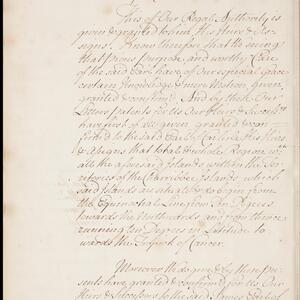 This of Our Regall Authority is
given & granted to him, his Heirs & As-
signes. Know therefore that We seeing
that pious purpose, and worthy Care
of the said Earl have of Our especial grace
certain knowledge & mere Motion, given
granted & confirm'd, And by these Our
Letters patents for Us Our Heirs & Successrs
have
to the said Earl of Carlisle his Heirs
& Assigns that total & whole Region wth
all the aforesaid Islands within the Ter-
ritories of the Carribbee Islands which
said Islands are situate & do begin from
the Equinoctial Line from Ten Degrees
towards the Northwards and from thence
running ten Degrees in Latitude to
wards the Tropick of Cancer.
Moreover We do give & by these pre-
sents have granted & confirmed for Us Our
Heirs & Successors to the said James Earl of